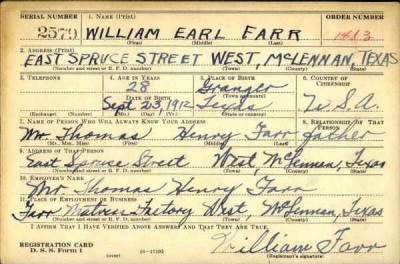 SERIAL NUMBER 1. NAME (Print) ORDER NUMBER
2579 WILLIAM EARL FARR 1413
(First) (Middle) (Last)
2. ADDRESS (Print)
EAST SPRUCE STREET WEST, McLENNAN, TEXAS
(Number and street or R. F. D. number) (Town) (County) (State)
3. TELEPHONE 4. AGE IN YEARS 5. PLACE OF BIRTH 6. COUNTRY OF CITIZENSHIP
28 Granger
DATE OF BIRTH
Sept 23, 1912 Texas U.S.A.
(Exchange) (Number) (Mo.) (Day) (Yr.) (State or country)
7. NAME OF PERSON WHO WILL ALWAYS KNOW YOUR ADDRESS 8. RELATIONSHIP OF THAT PERSON
Mr. Thomas Henry Farr father
(Mr., Mrs., Miss) (First) (Middle) (Last)
9. ADDRESS OF THAT PERSON
East Spruce Street West, McLennan, Texas
(Number and street or R. F. D. number) (Town) (County) (State)
10. EMPLOYER'S NAME
Mr Thomas Henry Farr
11. PLACE OF EMPLOYMENT OR BUSINESS
Farr Matress Factory West, McLennan, Texas
(Number and street or R. F. D. number) (Town) (County) (State)
I AFFIRM THAT I HAVE VERIFIED ABOVE ANSWERS AND THAT THEY ARE TRUE.
REGISTRATION CARD
D. S. S. FORM 1 (over) 16—17105
William Farr
(Registrant's signature)